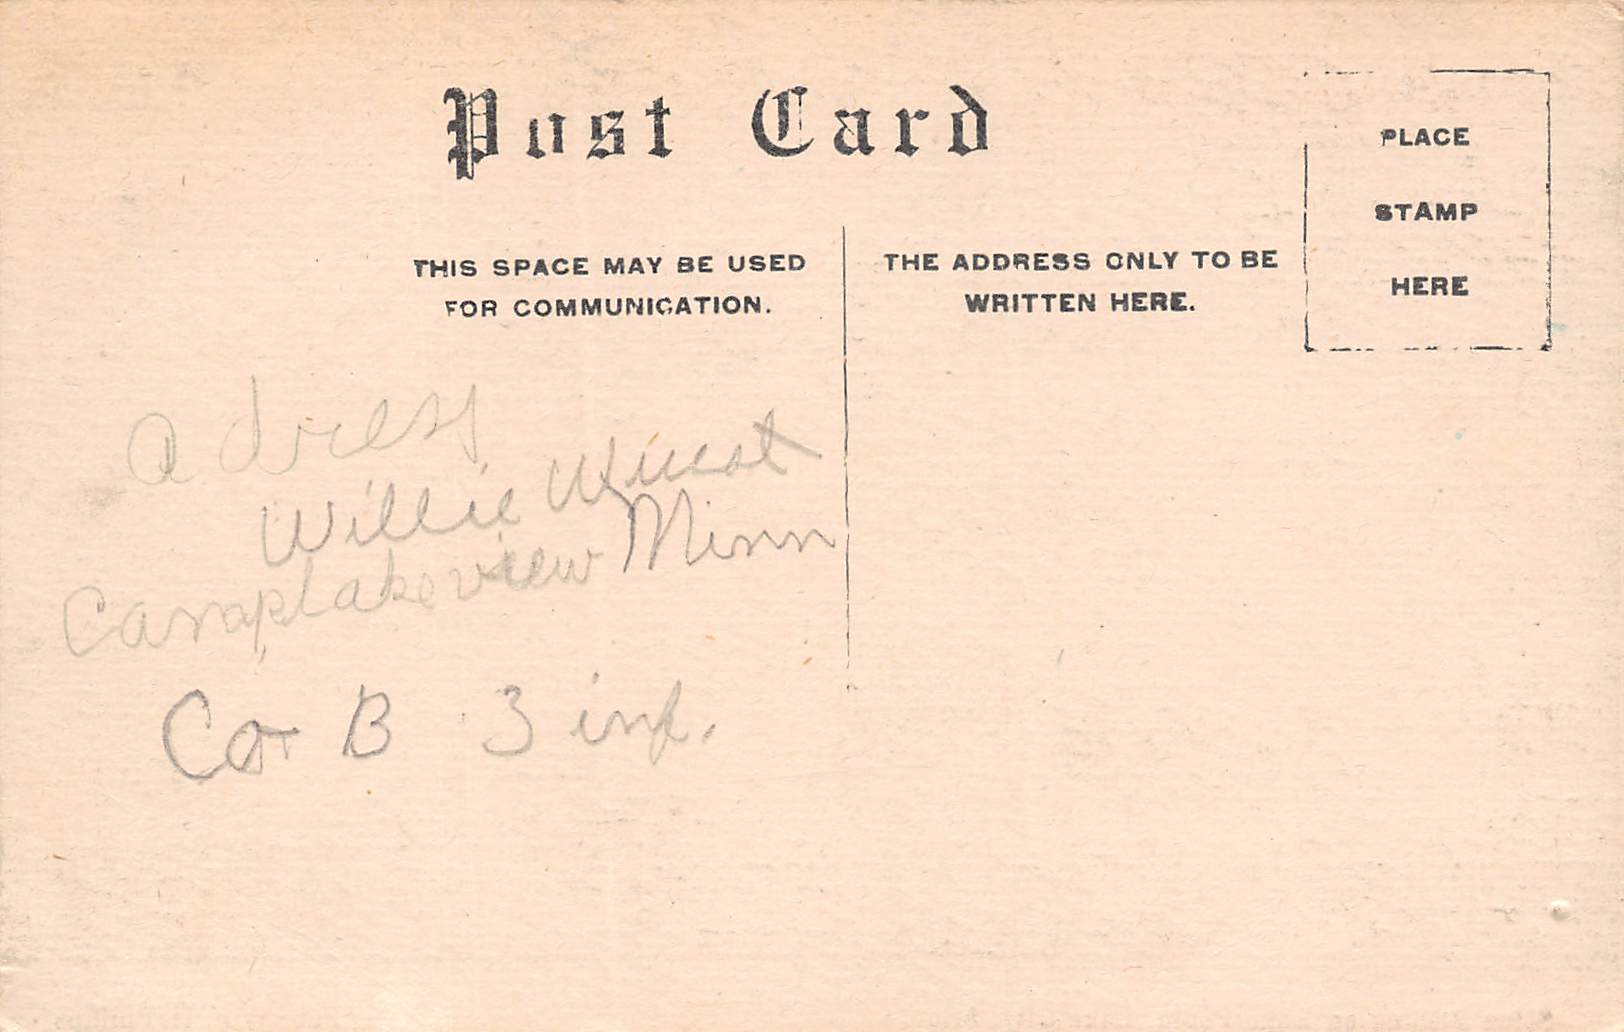 Post Card
PLACE
STAMP
HERE
THIS SPACE MAY BE USED
FOR COMMUNICATION.
THE ADDRESS ONLY TO BE
WRITTEN HERE.
adress
Willie
Camplakeview Minn
Co B 3 inf.